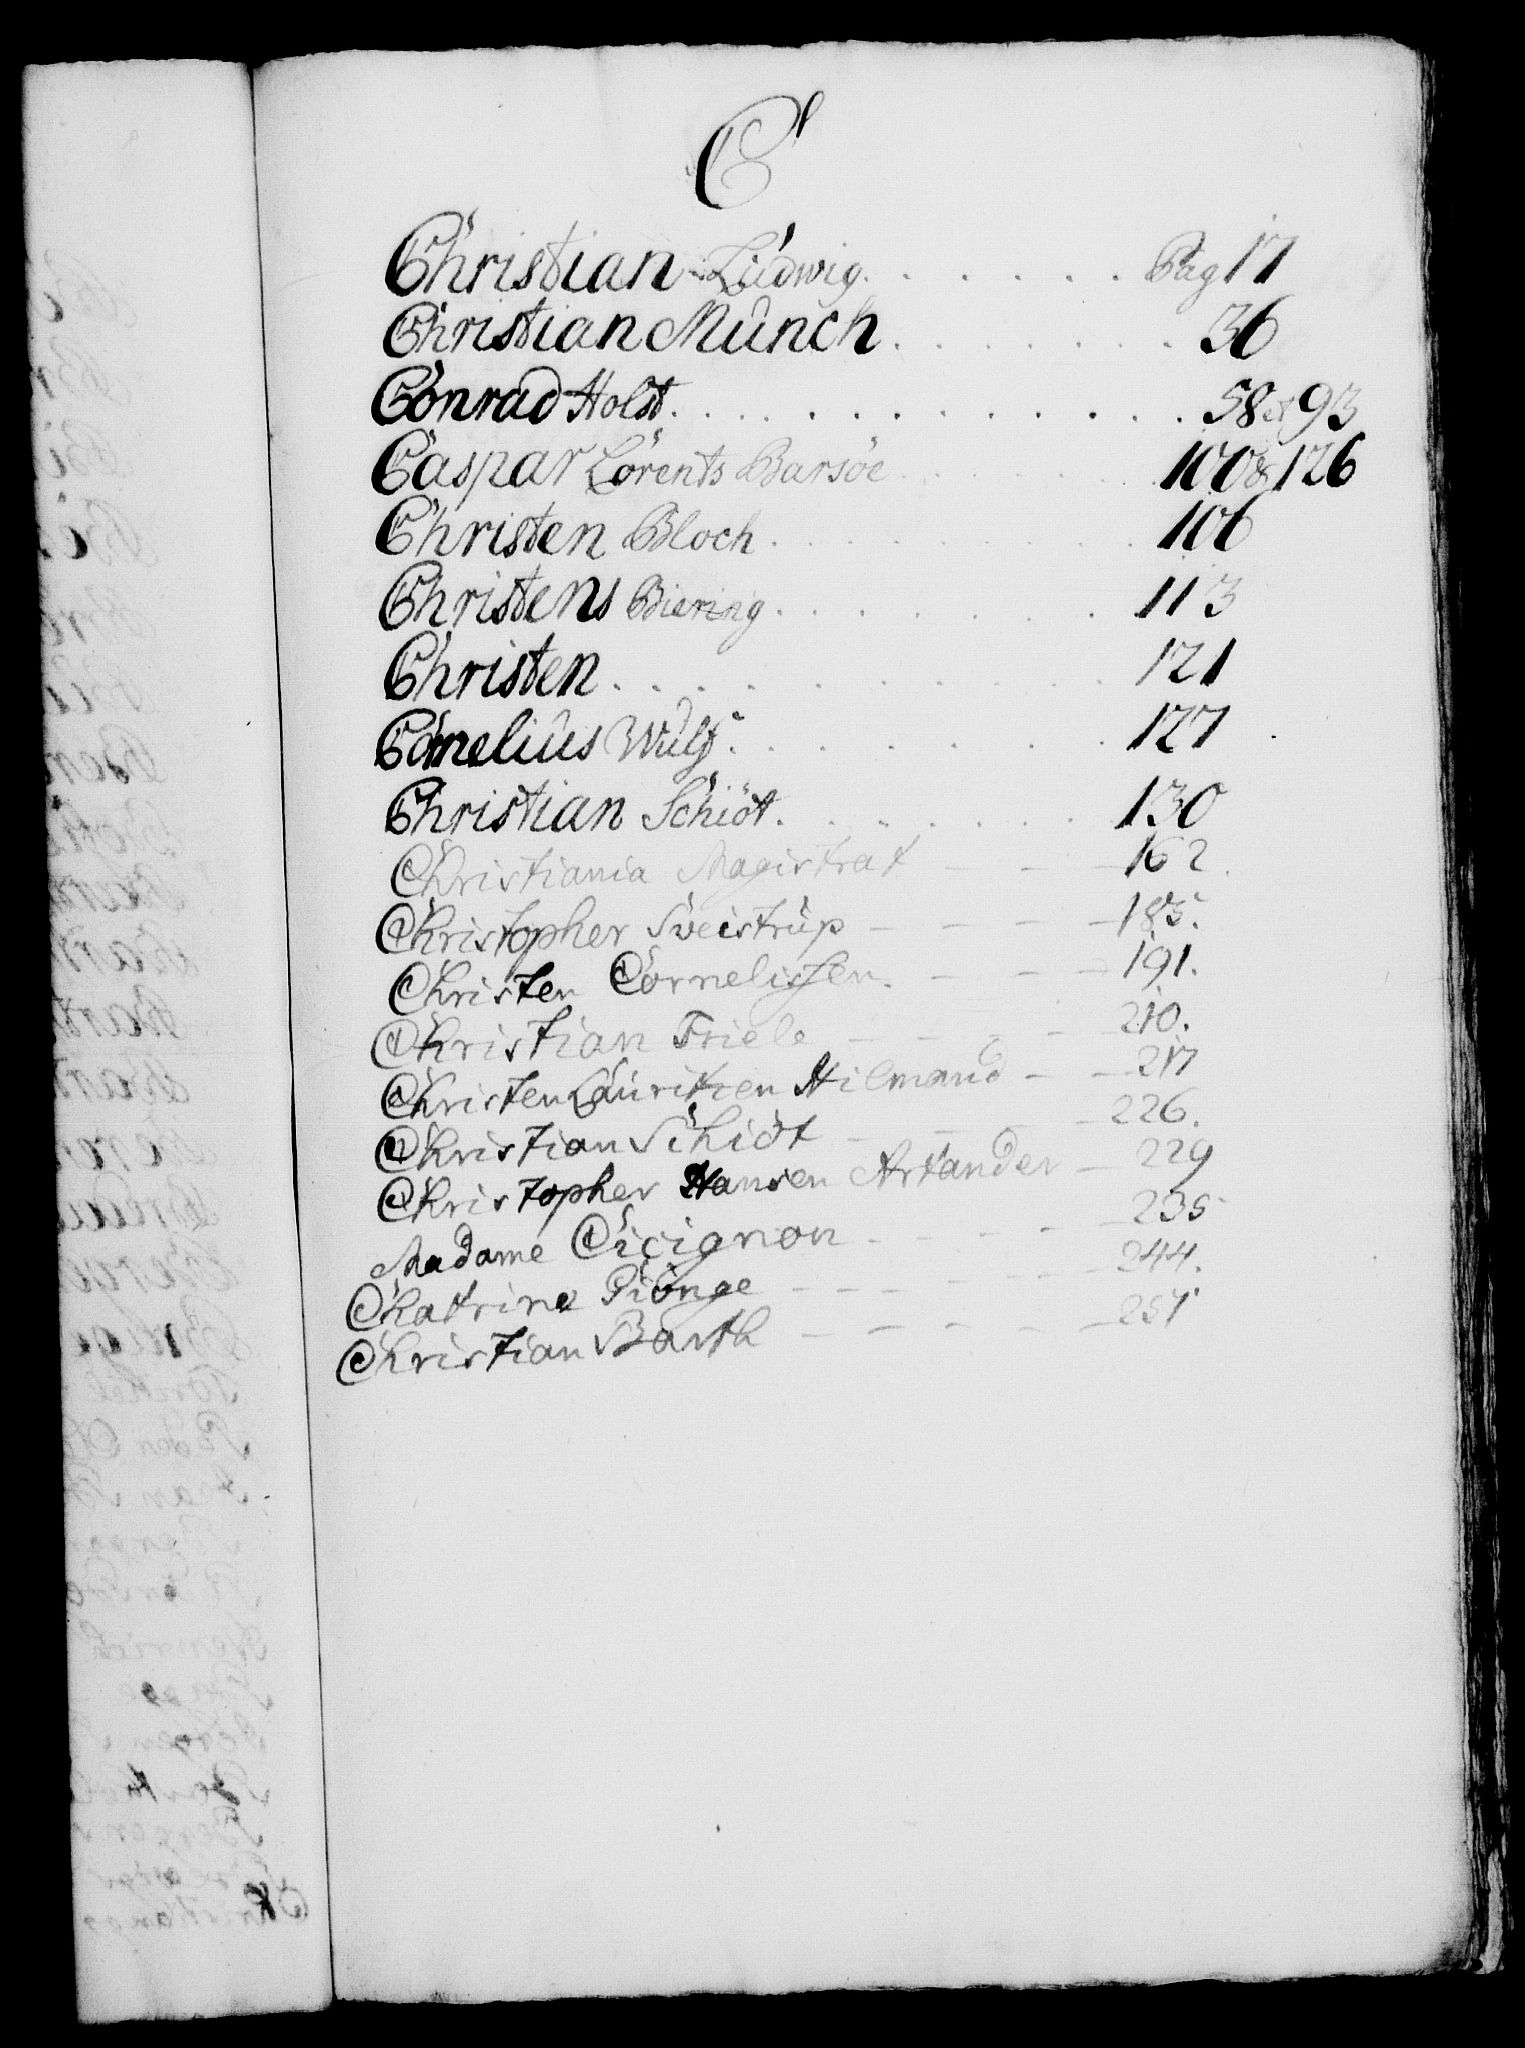 C
Christian Ludwig . . . . . . Pag 17
Christian Munch . . . . . . . . 36
Conrad Holst . . . . . . . . . . . . 58 et 93
Caspar Lorents Barsöe . . . . . . 100 & 126
Christen Bloch . . . . . . . . . 106
Christens Biering . . . . . . . 113
Christen . . . . . . . . . . . 121
Cornelius Wulf . . . . . . . . . 127
Christian Schiöt . . . . . . . 130
Christiania Magistrat - - - 162
Christopher Sveistrup - - - - 185.
Christen Cornelissen. - - - 191.
Christian Friele - - - - 210.
Christen Lauritzen Hilmand - - 217
Christian Schiöt - - - - 226.
Christopher Hansen Artander - 229
Madame Cicignon - - - - 235
Chatrine Piönge - - - - - - 244.
Christian Barth - - - - - - 257